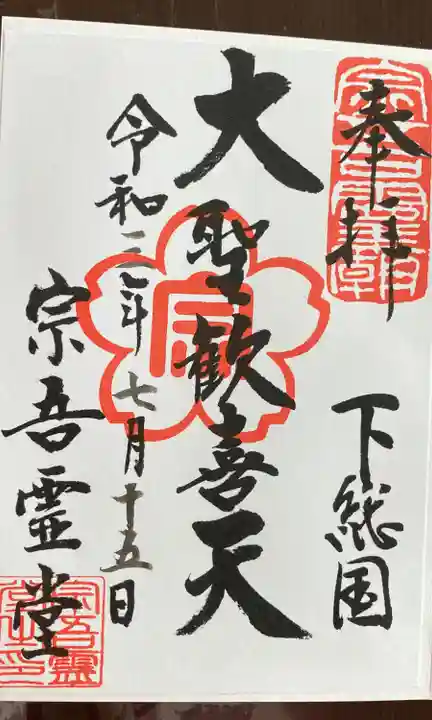 奉拝
下総国
大聖歓喜天
令和三年七月十五日
宗吾霊堂